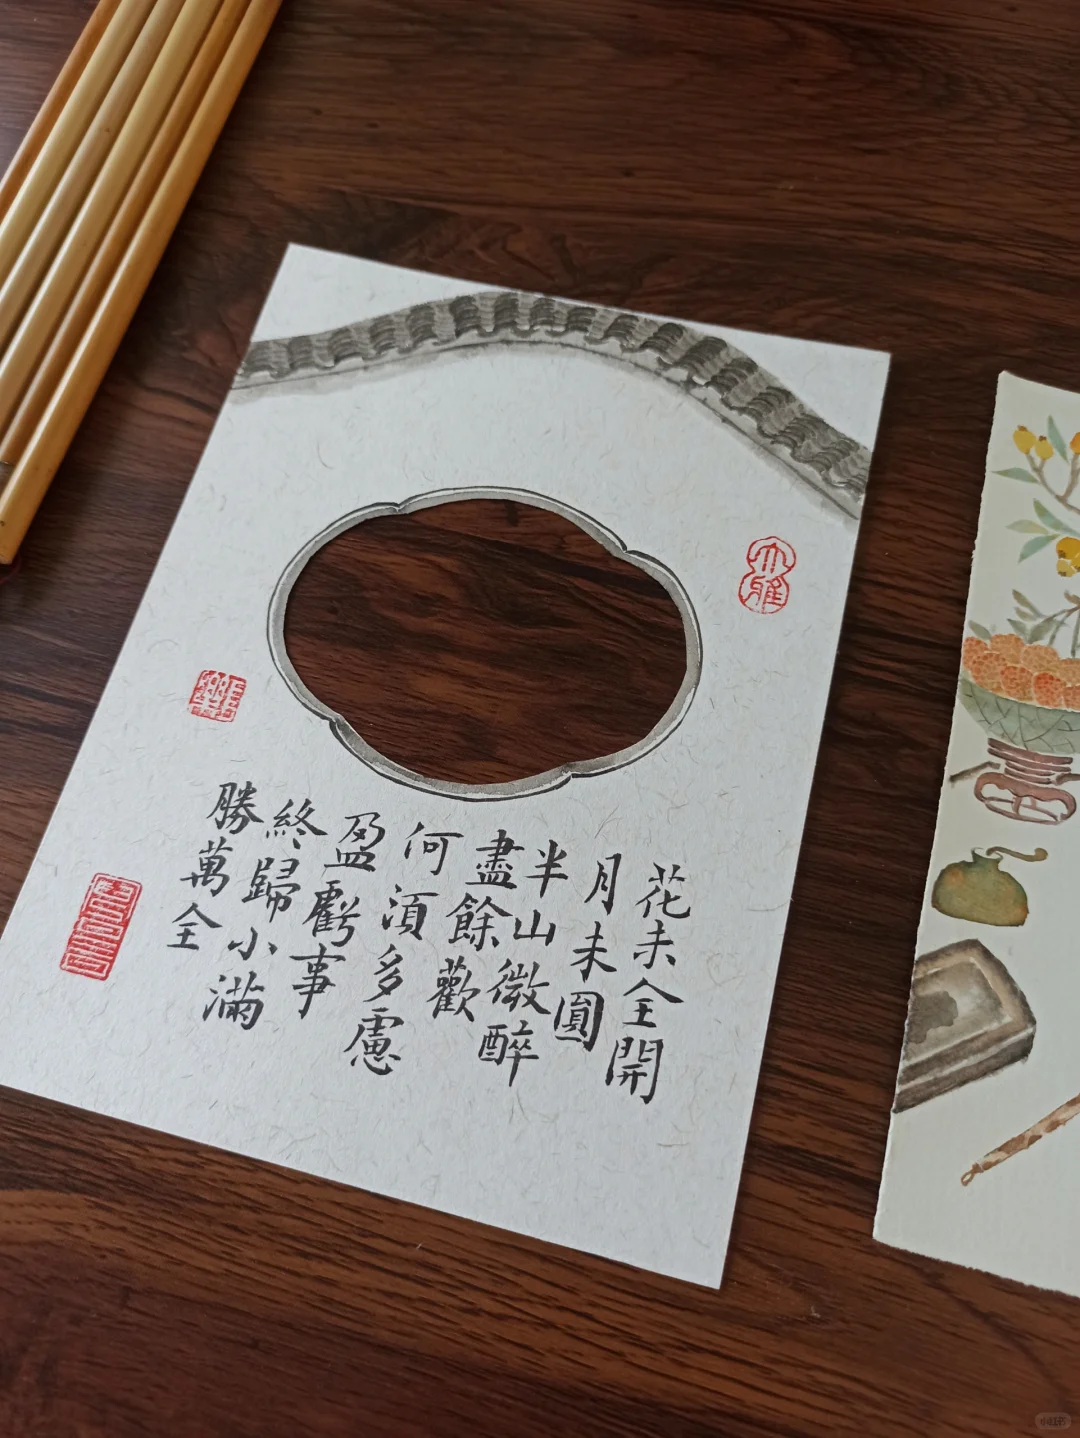 大雅
花未全開
月未圓
半山微醉
盡餘歡
何湏多慮
盈虧事
終歸小滿
勝萬全
小红书